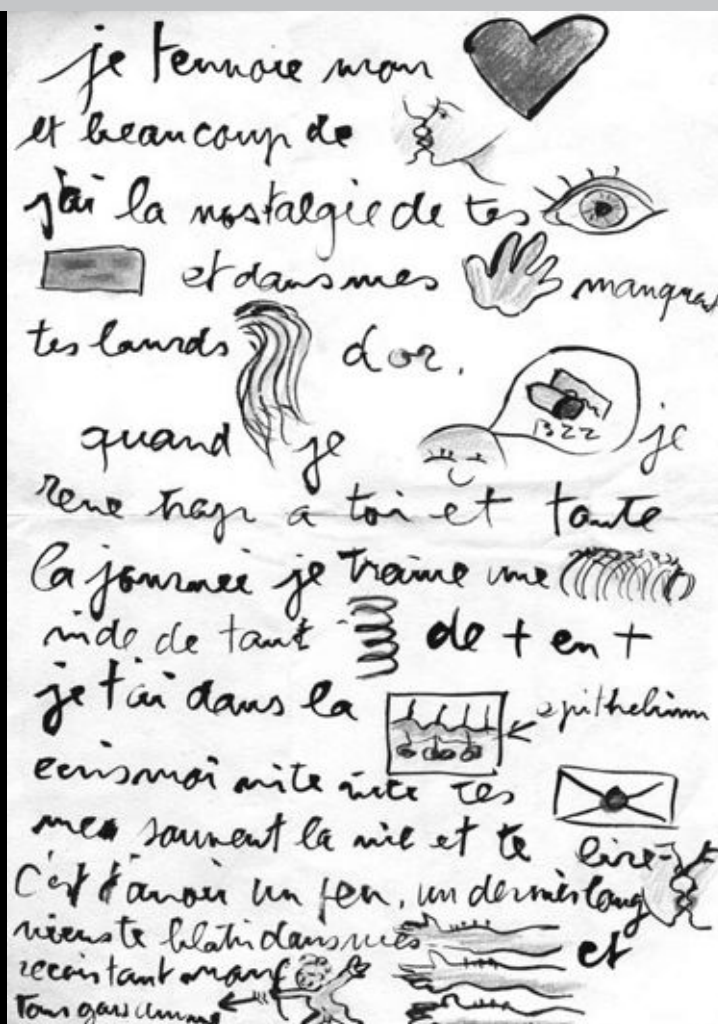 je t'envoie mon
et beaucoup de
j'ai la nostalgie de tes
et dans mes manquent
tes lourds d'or.
quand je je
BZZ
reve trop a toi et toute
la journée je traine une
vide de tout de + en +
je t'ai dans la epithelium
ecris moi vite vite tes
me sauvent la vie et te lire
c'est t'avoir un peu, un dernier long
viens te blotir dans mes et
recois tout mon